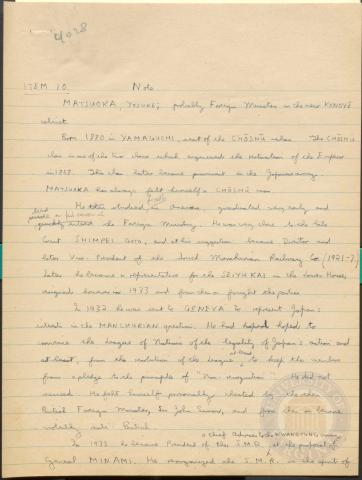 4028
ITEM 10. Note
MATSUOKA, YOSUKE; probably Foreign Minister in the new KONOYE
cabinet.
Born 1880 in YAMAGUCHI, seat of the CHŌSHŪ clan. The CHŌSHŪ
clan is one of the two clans which engineered the restoration of the Emperor
in 1868. This clan later became paramount in the Japanese army.
MATSUOKA has always felt himself a CHŌSHŪ man.
He studied in America, graduated very early and
entered the Foreign Ministry. He was very close to the late
Count SHIMPEI GOTO, and at his suggestion became Director and
later Vice President of the South Manchurian Railway Co. (1921-7).
Later he became a representative for the SEIYUKAI in the Lower House,
resigned however in 1933 and from then fought the parties.
In 1932 he was sent to GENEVA to represent Japan's
interests in the MANCHURIAN question. He had hoped to
convince the League of Nations of the legality of Japan's action and
at least, from the resolution of the League to keep the
from a pledge to the principle of "Non-recognition". He did not
succeed. He felt himself personally cheated by the then
British Foreign Minister, Sir John Simon, and from then on became
violently anti-British.
a Chief Advisor to the KWANGTUNG army
In 1935 he became President of the S.M.R. at the proposal of
General MINAMI. He reorganized the S.M.R. in the spirit of